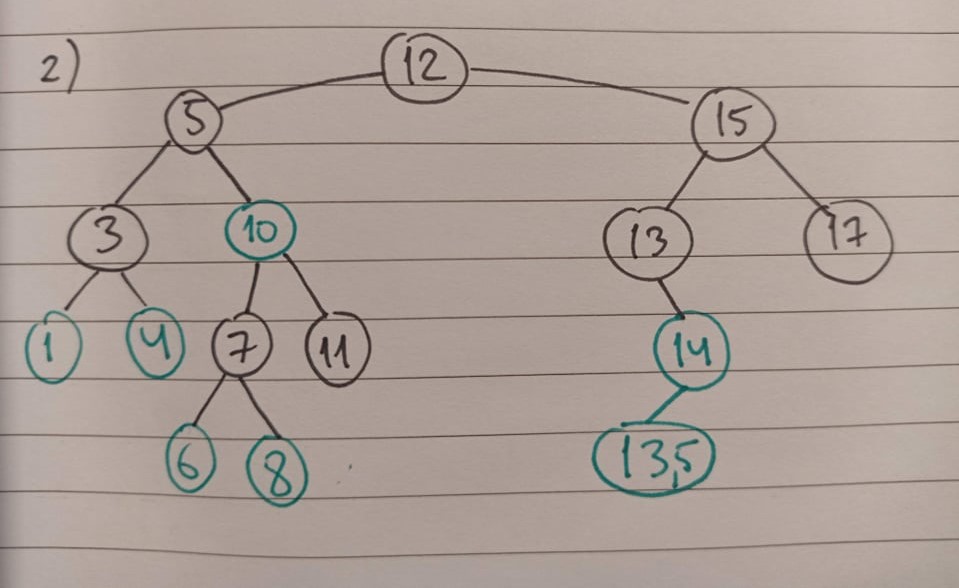 2)
12
5 15
3 10 13 17
1 4 7 11 14
6 8 13,5